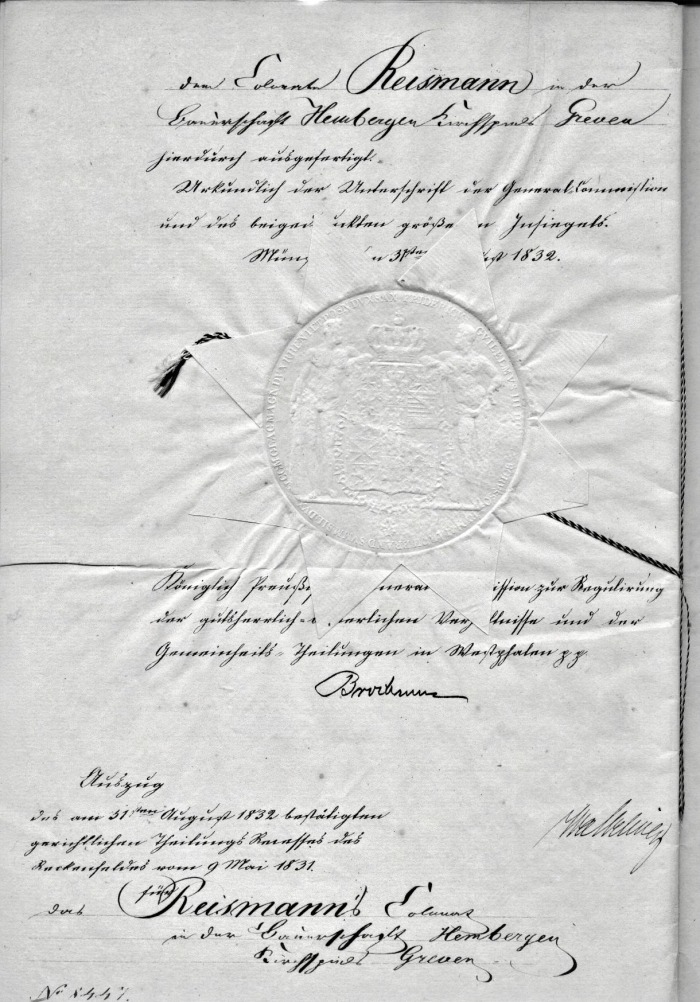 dem Colonate Reismann in der
Bauerschaft Hembergen Kirchspiels Greven
hierdurch ausgefertigt.
Urkundlich der Unterschrift der General Commission
und des beiged ckten größe n Insiegels.
Mün n 31ten st 1832.
Königlich Preuß nera ission zur Regulirung
der gutsherrlich- erlichen Ver ltnisse und der
Gemeinheits-Theilungen in Westphalen p.p.
Auszug
des am 31sten August 1832 bestätigten
gerichtlichen Theilungs Recesses des
Reckenfeldes vom 9 Mai 1831.
für
das Reismann's Colonat
in der Bauerschaft Hembergen
Kirchspiels Greven